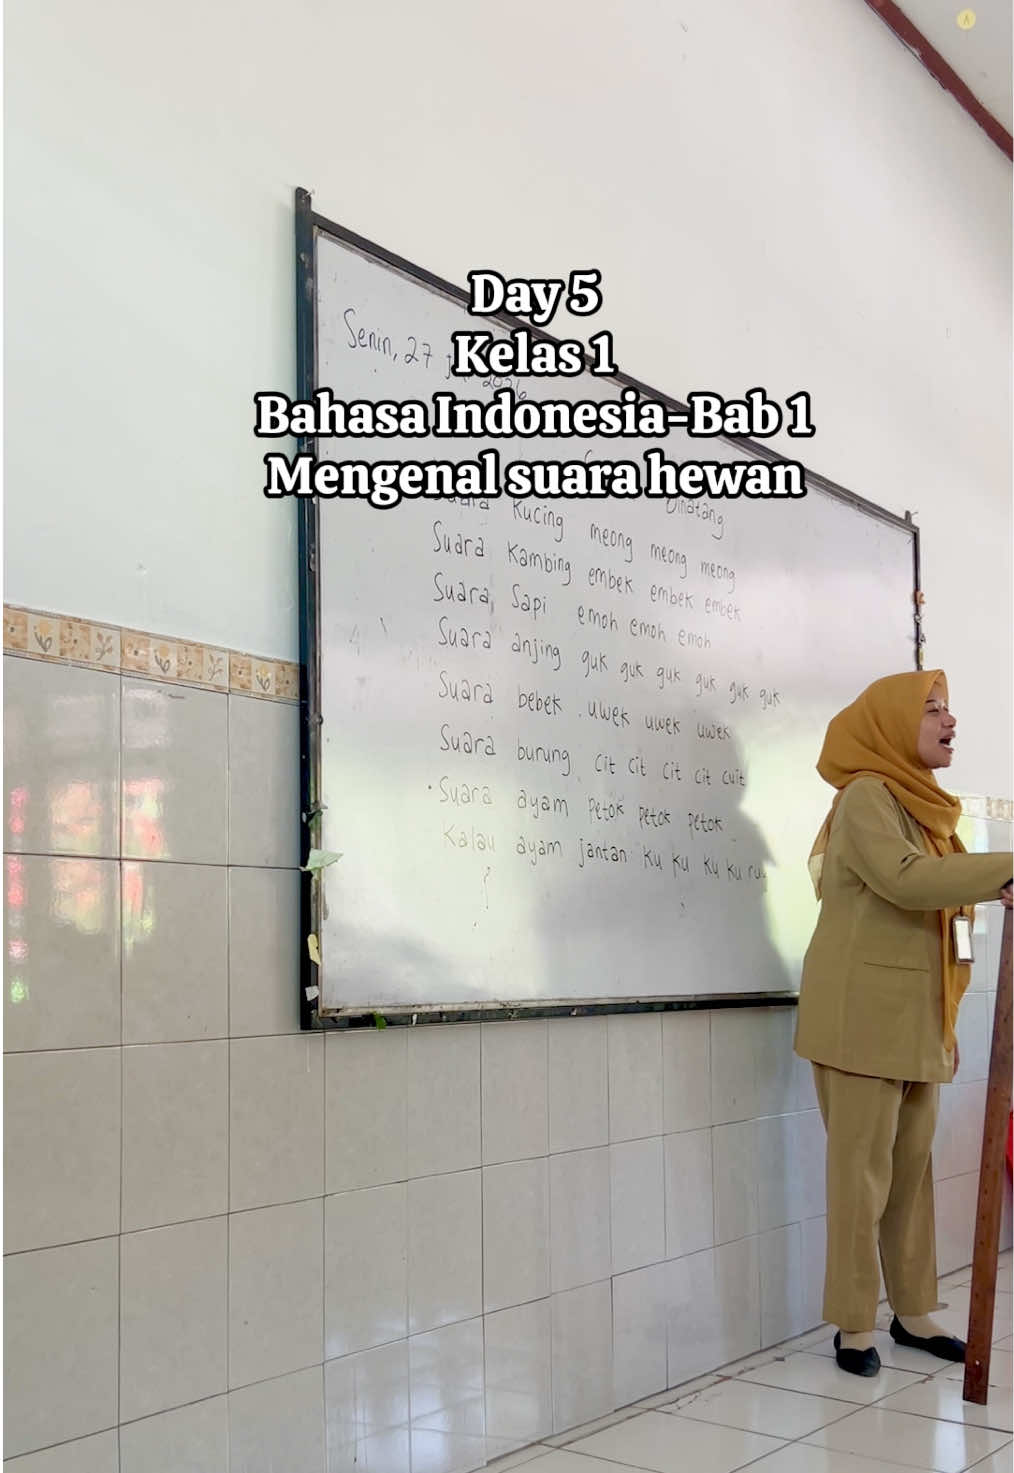 Day 5
Kelas 1
Bahasa Indonesia-Bab 1
Mengenal suara hewan
Senin, 27 2026
Binatang
Suara Kucing meong meong meong
Suara Kambing embek embek embek
Suara Sapi emoh emoh emoh
Suara anjing guk guk guk guk guk guk
Suara bebek uwek uwek uwek
Suara burung cit cit cit cit cuit
Suara ayam petok petok petok
Kalau ayam jantan ku ku ku ku